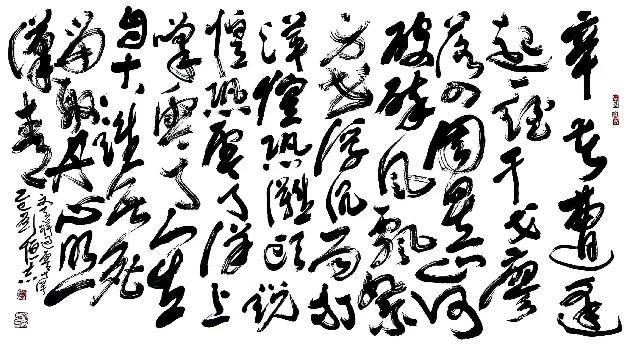 辛苦遭逢
起一經干戈寥
落四周星山河
破碎風飄絮
身世浮沉雨打
萍惶恐灘頭說
惶恐零丁洋里
嘆零丁人生
自古誰無死
留取丹心照
汗青
文天祥過零丁洋